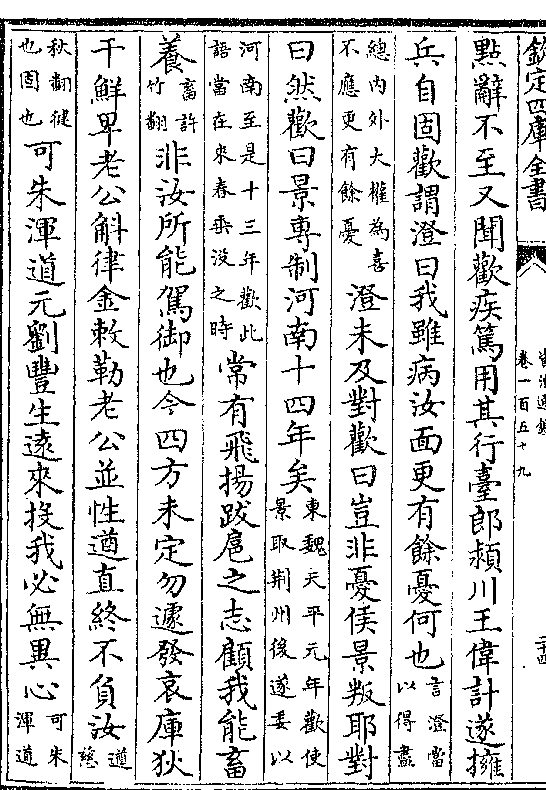 欽定四庫全書
資治通鑑
卷一百五十九
二十四
點辭不至又聞歡疾篤用其行臺郎潁川王偉計遂擁
兵自固歡謂澄曰我雖病汝面更有餘憂何也言澄當以得盡
總内外大權為喜不應更有餘憂澄未及對歡曰豈非憂侯景叛耶對
曰然歡曰景專制河南十四年矣東魏天平元年歡使景取荆州後遂委以
河南至是十三年歡此語當在來春垂没之時常有飛揚跋扈之志顧我能畜
養畜許竹翻非汝所能駕御也今四方未定勿遽發哀庫狄
干鮮卑老公斛律金敕勒老公並性遒直終不負汝遒慈
秋翻健也固也可朱渾道元劉豐生遠來投我必無異心可朱渾道